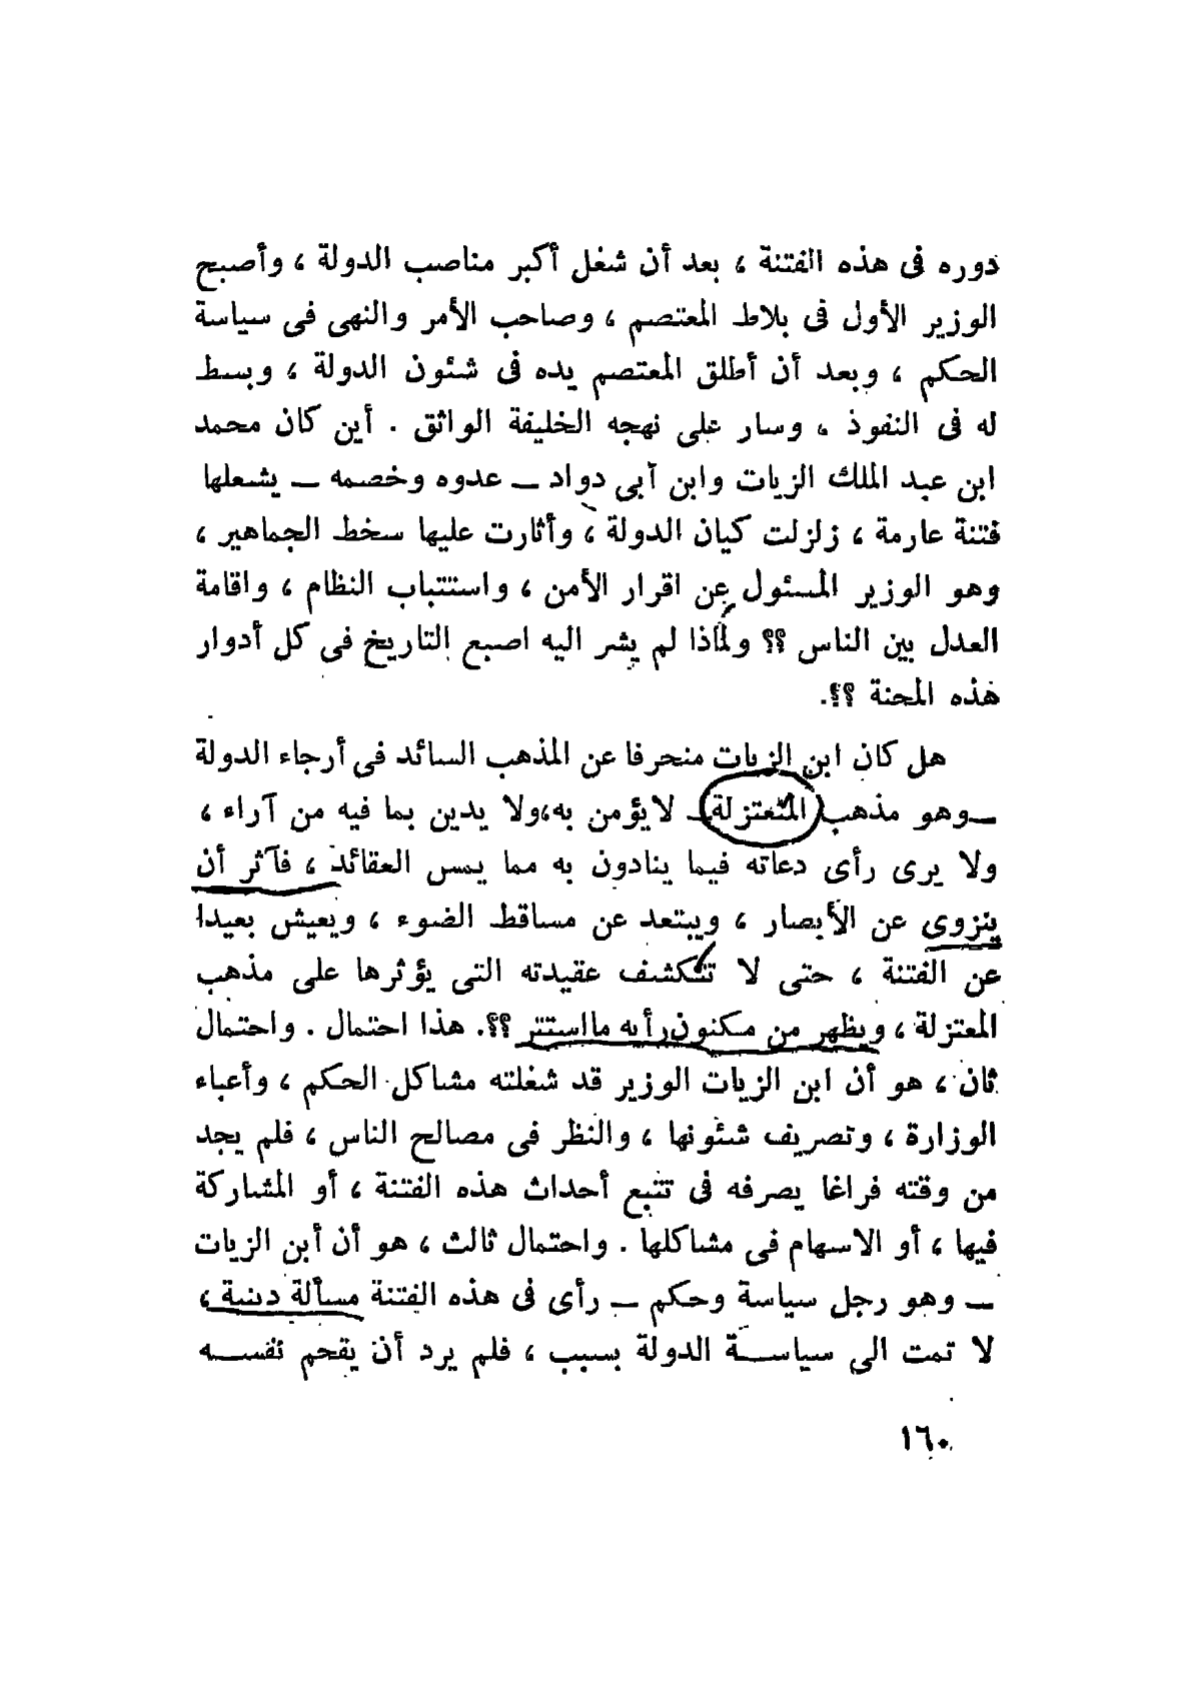 دوره فى هذه الفتنة ، بعد أن شغل أكبر مناصب الدولة ، وأصبح
الوزير الأول فى بلاط المعتصم ، وصاحب الأمر والنهى فى سياسة
الحكم ، وبعد أن أطلق المعتصم يده فى شئون الدولة ، وبسط
له فى النفوذ ، وسار على نهجه الخليفة الواثق . أين كان محمد
ابن عبد الملك الزيات وابن أبى دواد ــ عدوه وخصمه ــ يشعلها
فتنة عارمة ، زلزلت كيان الدولة ، وأثارت عليها سخط الجماهير ،
وهو الوزير المسئول عن اقرار الأمن ، واستتباب النظام ، واقامة
العدل بين الناس ؟؟ ولماذا لم يشر اليه اصبع التاريخ فى كل أدوار
هذه المحنة ؟؟.
هل كان ابن الزيات منحرفا عن المذهب السائد فى أرجاء الدولة
ــ وهو مذهب المعتزلة ــ لا يؤمن به، ولا يدين بما فيه من آراء ،
ولا يرى رأى دعاته فيما ينادون به مما يمس العقائد ، فآثر أن
ينزوى عن الأبصار ، ويبتعد عن مساقط الضوء ، ويعيش بعيدا
عن الفتنة ، حتى لا تتكشف عقيدته التى يؤثرها على مذهب
المعتزلة ، ويظهر من مكنون رأيه ما استتر ؟؟. هذا احتمال . واحتمال
ثان ، هو أن ابن الزيات الوزير قد شغلته مشاكل الحكم ، وأعباء
الوزارة ، وتصريف شئونها ، والنظر فى مصالح الناس ، فلم يجد
من وقته فراغا يصرفه فى تتبع أحداث هذه الفتنة ، أو المشاركة
فيها ، أو الاسهام فى مشاكلها . واحتمال ثالث ، هو أن أبن الزيات
ــ وهو رجل سياسة وحكم ــ رأى فى هذه الفتنة مسألة دينية ،
لا تمت الى سياسة الدولة بسبب ، فلم يرد أن يقحم نفسه
١٦٠